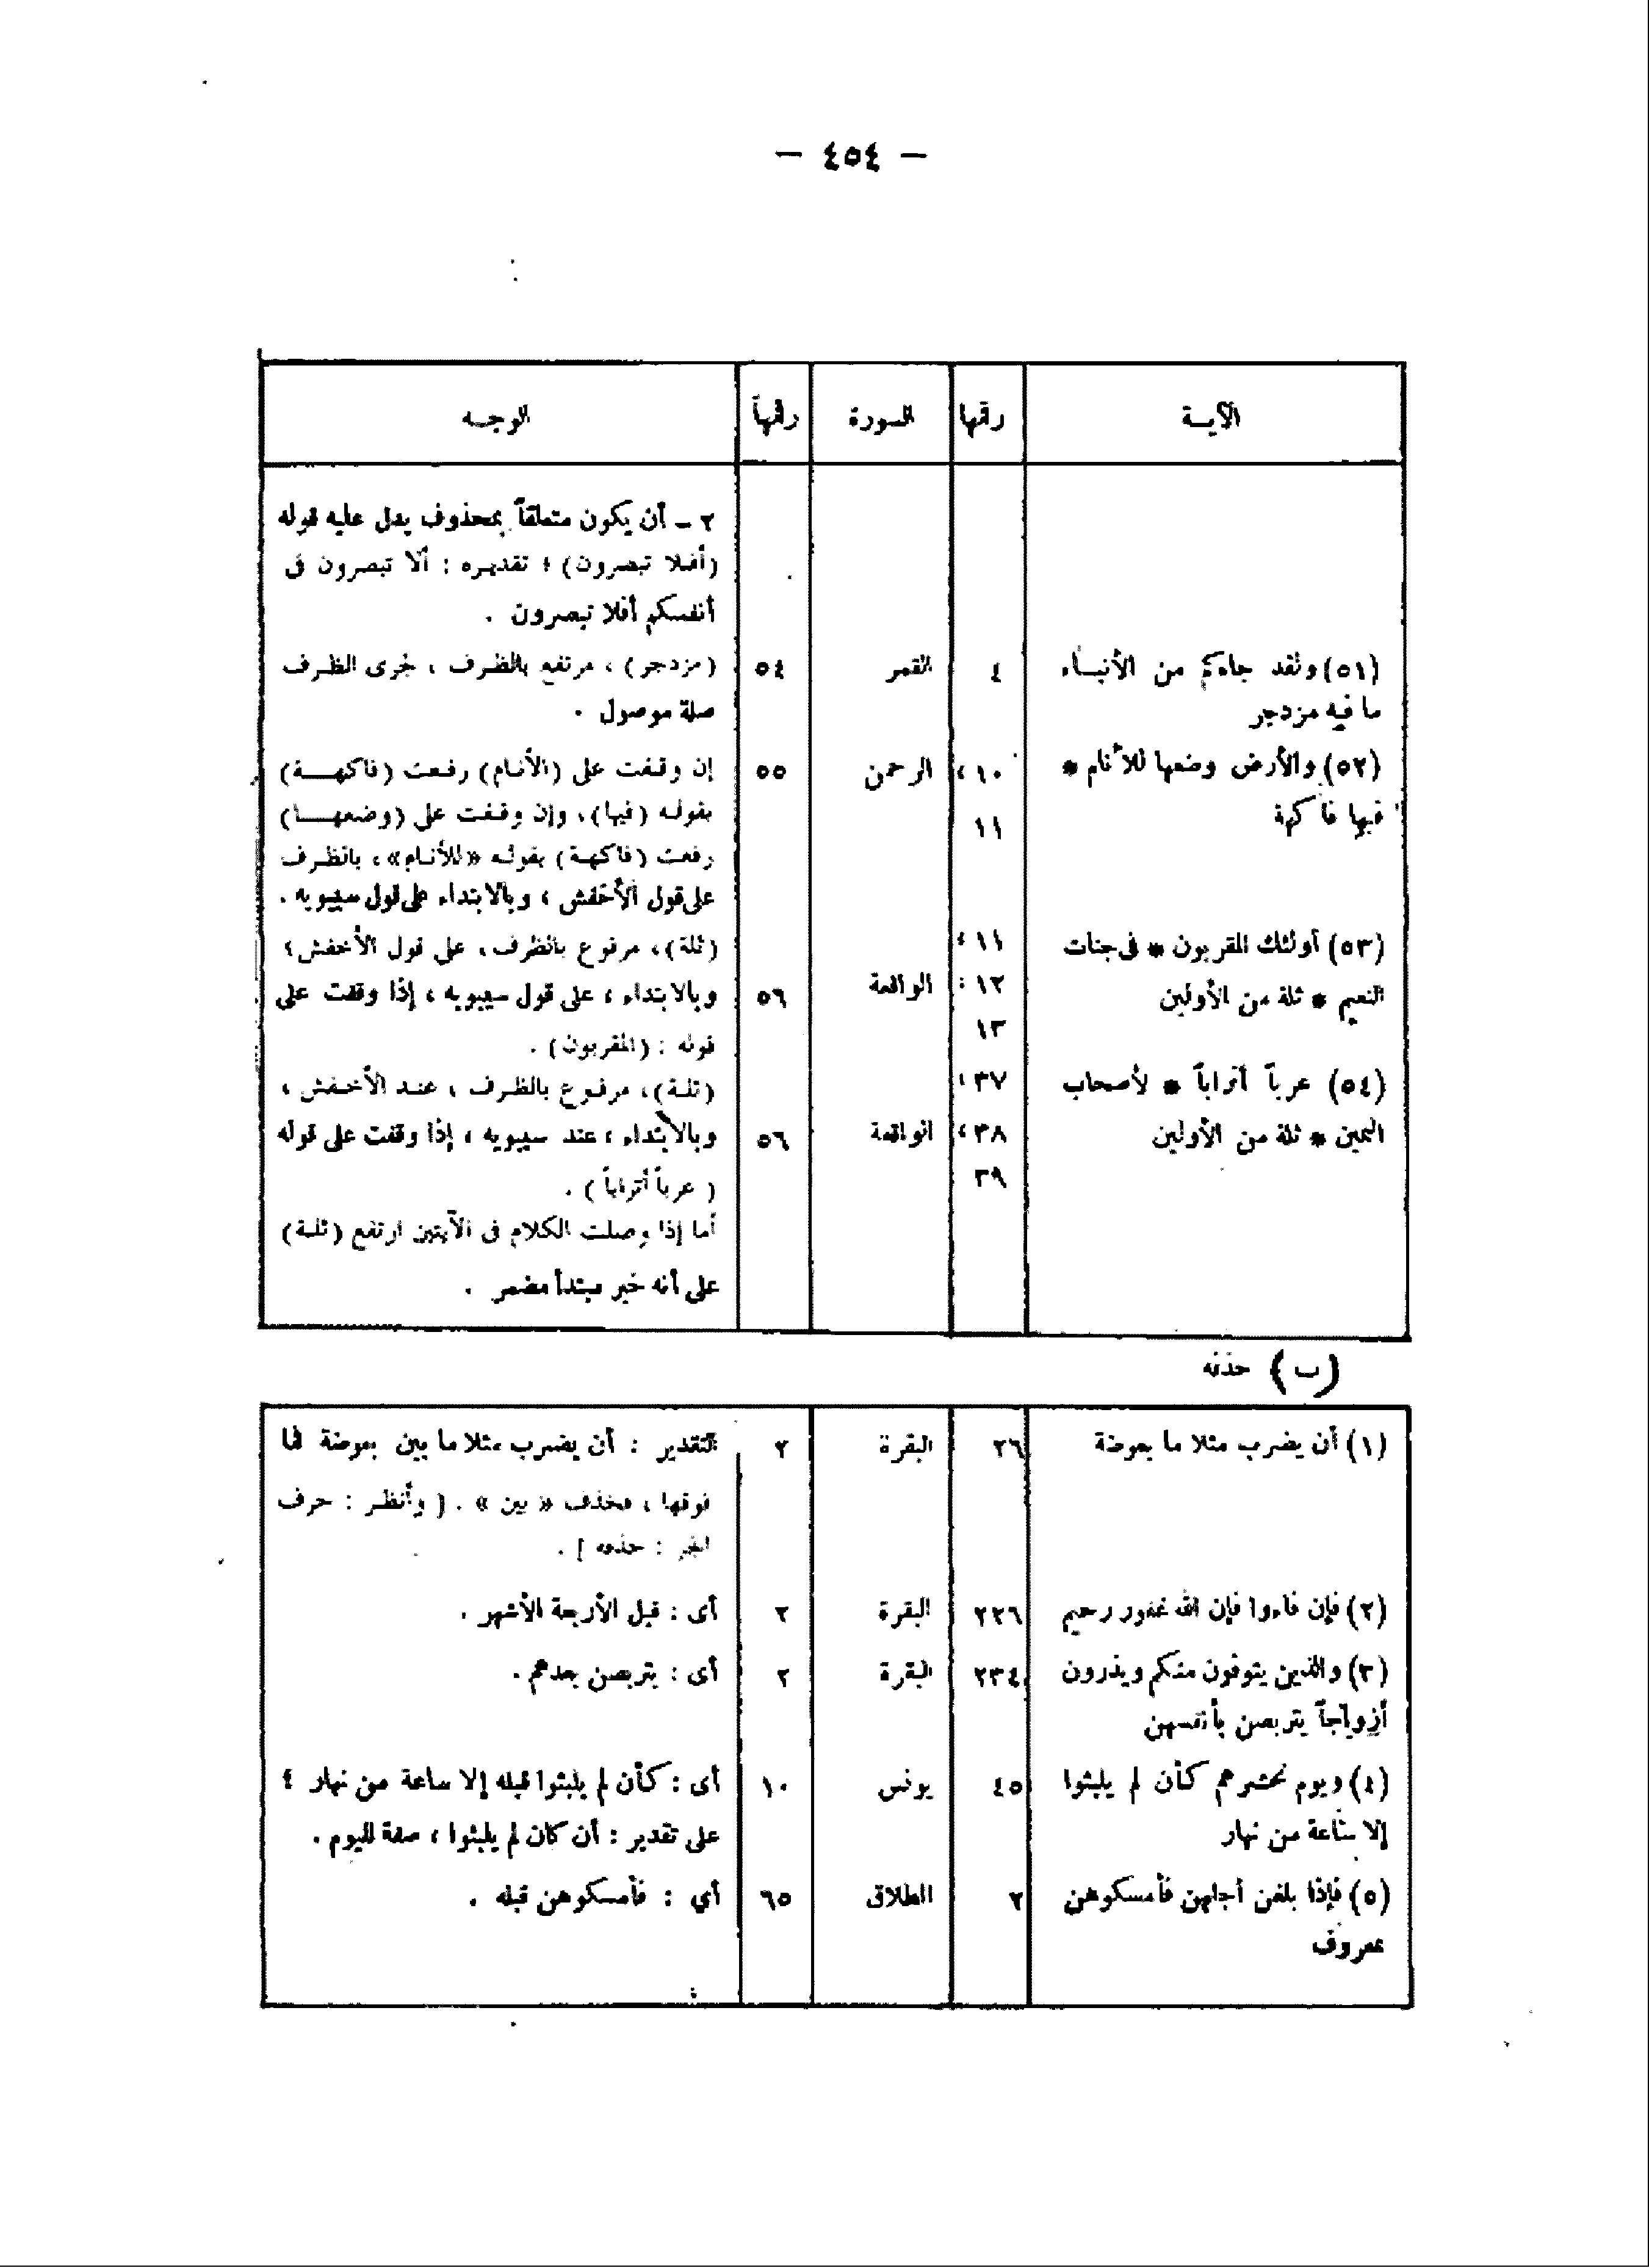 — ٤٥٤ —
الآيـة رقمها السورة رقمها الوجـه
٢ – أن يكون متعلقاً بمحذوف يدل عليه قوله
(أفلا تبصرون) ؛ تقديره : ألا تبصرون فى
أنفسكم أفلا تبصرون .
(٥١) ولقد جاءكم من الأنبـاء ٤ القمر ٥٤ (مزدجر) ، مرتفع بالظرف ، لجرى الظرف
ما فيه مزدجر صلة موصول .
(٥٢) والأرض وضعها للأنام * ١٠، الرحمن ٥٥ إن وقفت على (الأنام) رفعت (فاكهـة)
فيها فاكهة ١١ بقوله (فيها)، وإن وقفت على (وضعهـا)
رفعت (فاكهة) بقوله «للأنام»، بالظرف
على قول الأخفش ، وبالابتداء على قول سيبويه .
(٥٣) أولئك المقربون * فى جنات ١١، (ثلة)، مرفوع بالظرف، على قول الأخفش؛
النعيم * ثلة من الأولين ١٢، الواقعة ٥٦ وبالابتداء ، على قول سيبويه ، إذا وقفت على
١٣ قوله : (المقربون) .
(٥٤) عرباً أتراباً * لأصحاب ٣٧، (ثلة)، مرفوع بالظرف ، عند الأخفش ،
اليمين * ثلة من الأولين ٣٨، الواقعة ٥٦ وبالابتداء ، عند سيبويه ، إذا وقفت على قوله
٣٩ ( عرباً أتراباً ) .
أما إذا وصلت الكلام فى الآيتين ارتفع (ثلة)
على أنه خبر مبتدأ مضمر .
(ب) حذفه
(١) أن يضرب مثلا ما بعوضة ٢٦ البقرة ٢ التقدير : أن يضرب مثلا ما بين بعوضة فما
فوقها ، فحذف « بين » . [ وأنظر : حرف
الجر : حذفه ] .
(٢) فإن فاءوا فإن الله غفور رحيم ٢٢٦ البقرة ٢ أى : قبل الأربعة الأشهر .
(٣) والذين يتوفون منكم ويذرون ٢٣٤ البقرة ٢ أى : يتربصن بعدهم .
أزواجاً يتربصن بأنفسهن
(٤) ويوم نحشرهم كأن لم يلبثوا ٤٥ يونس ١٠ أى : كأن لم يلبثوا قبله إلا ساعة من نهار ؛
إلا ساعة من نهار على تقدير : أن كان لم يلبثوا ، صفة لليوم .
(٥) فإذا بلغن أجلهن فأمسكوهن ٢ الطلاق ٦٥ أي : فأمسكوهن قبله .
بمعروف